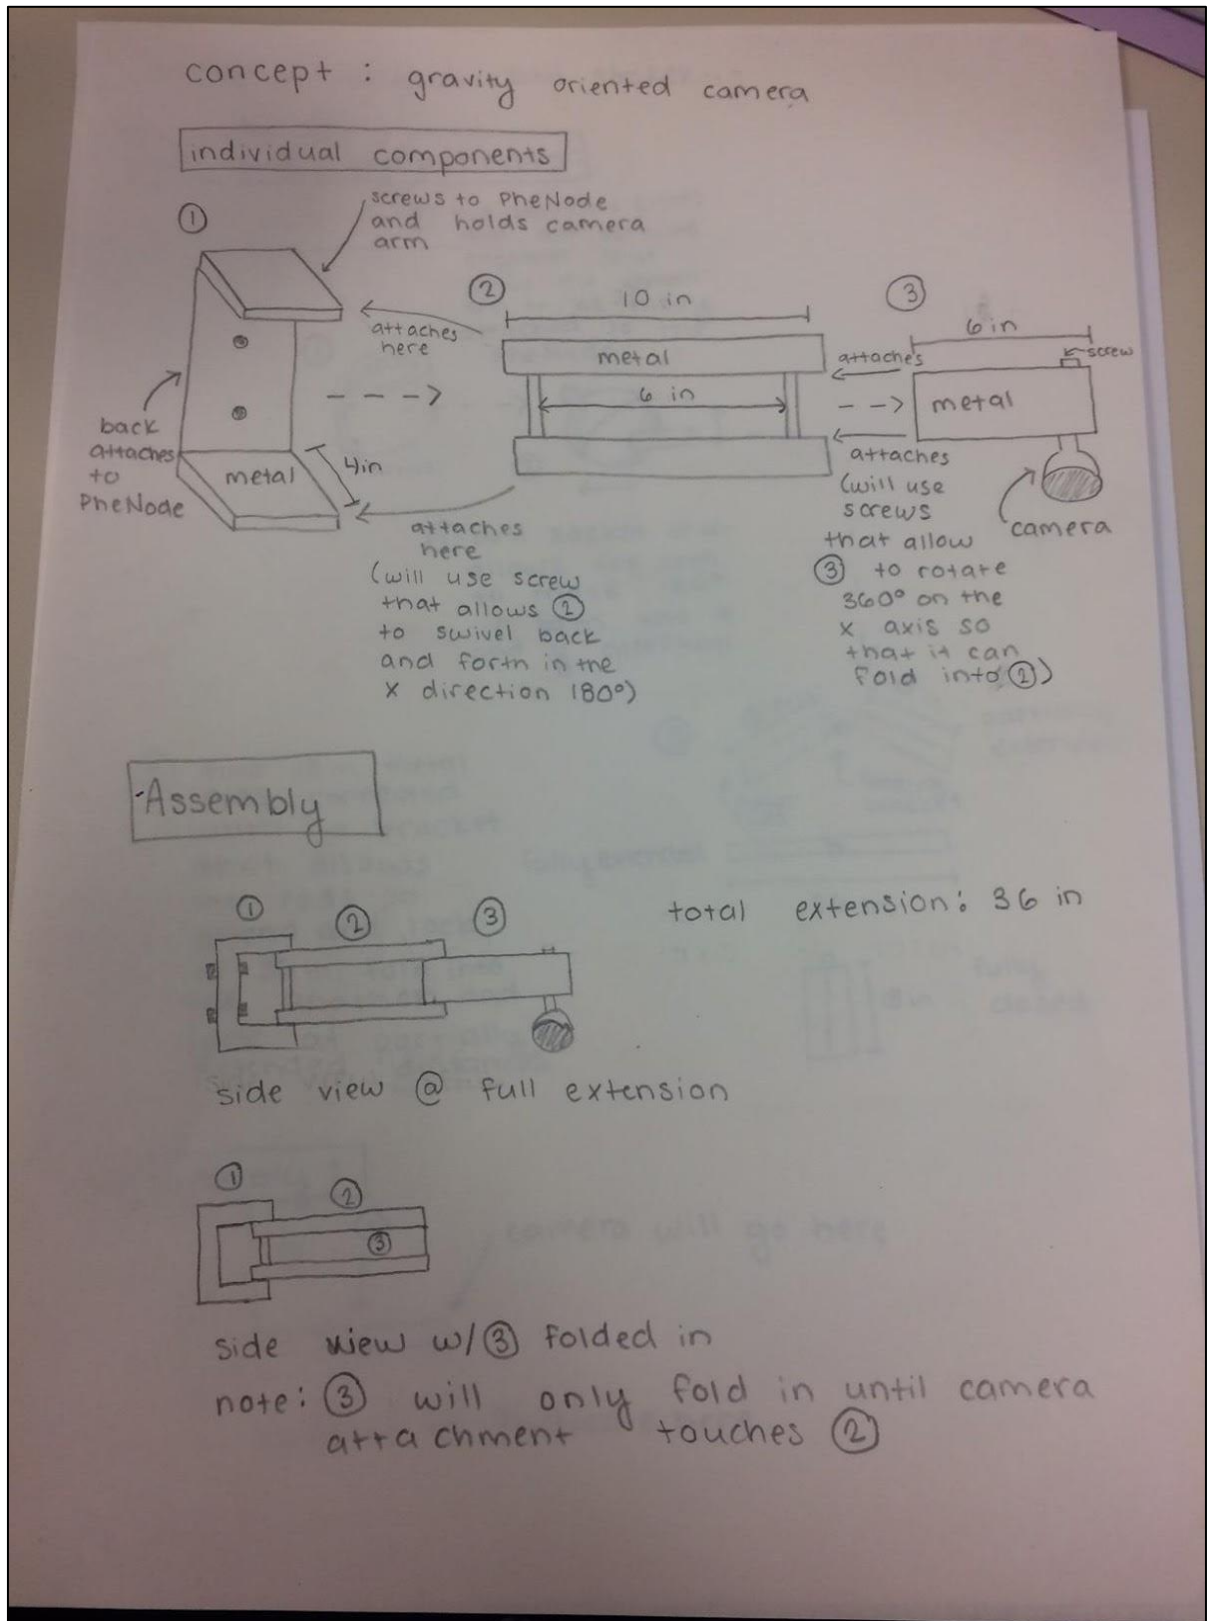 concept : gravity oriented camera
individual components
①
screws to PheNode
and holds camera
arm
attaches
here
back
attaches
to
PheNode
metal
4in
attaches
here
(will use screw
that allows ②
to swivel back
and forth in the
x direction 180°)
②
10 in
metal
6 in
③
6 in
screw
attaches
metal
attaches
(will use
screws
that allow
③ to rotate
360° on the
x axis so
that it can
fold into ②)
camera
Assembly
① ② ③
total extension: 36 in
side view @ full extension
① ②
③
side view w/③ folded in
note: ③ will only fold in until camera
attachment touches ②
camera will go here